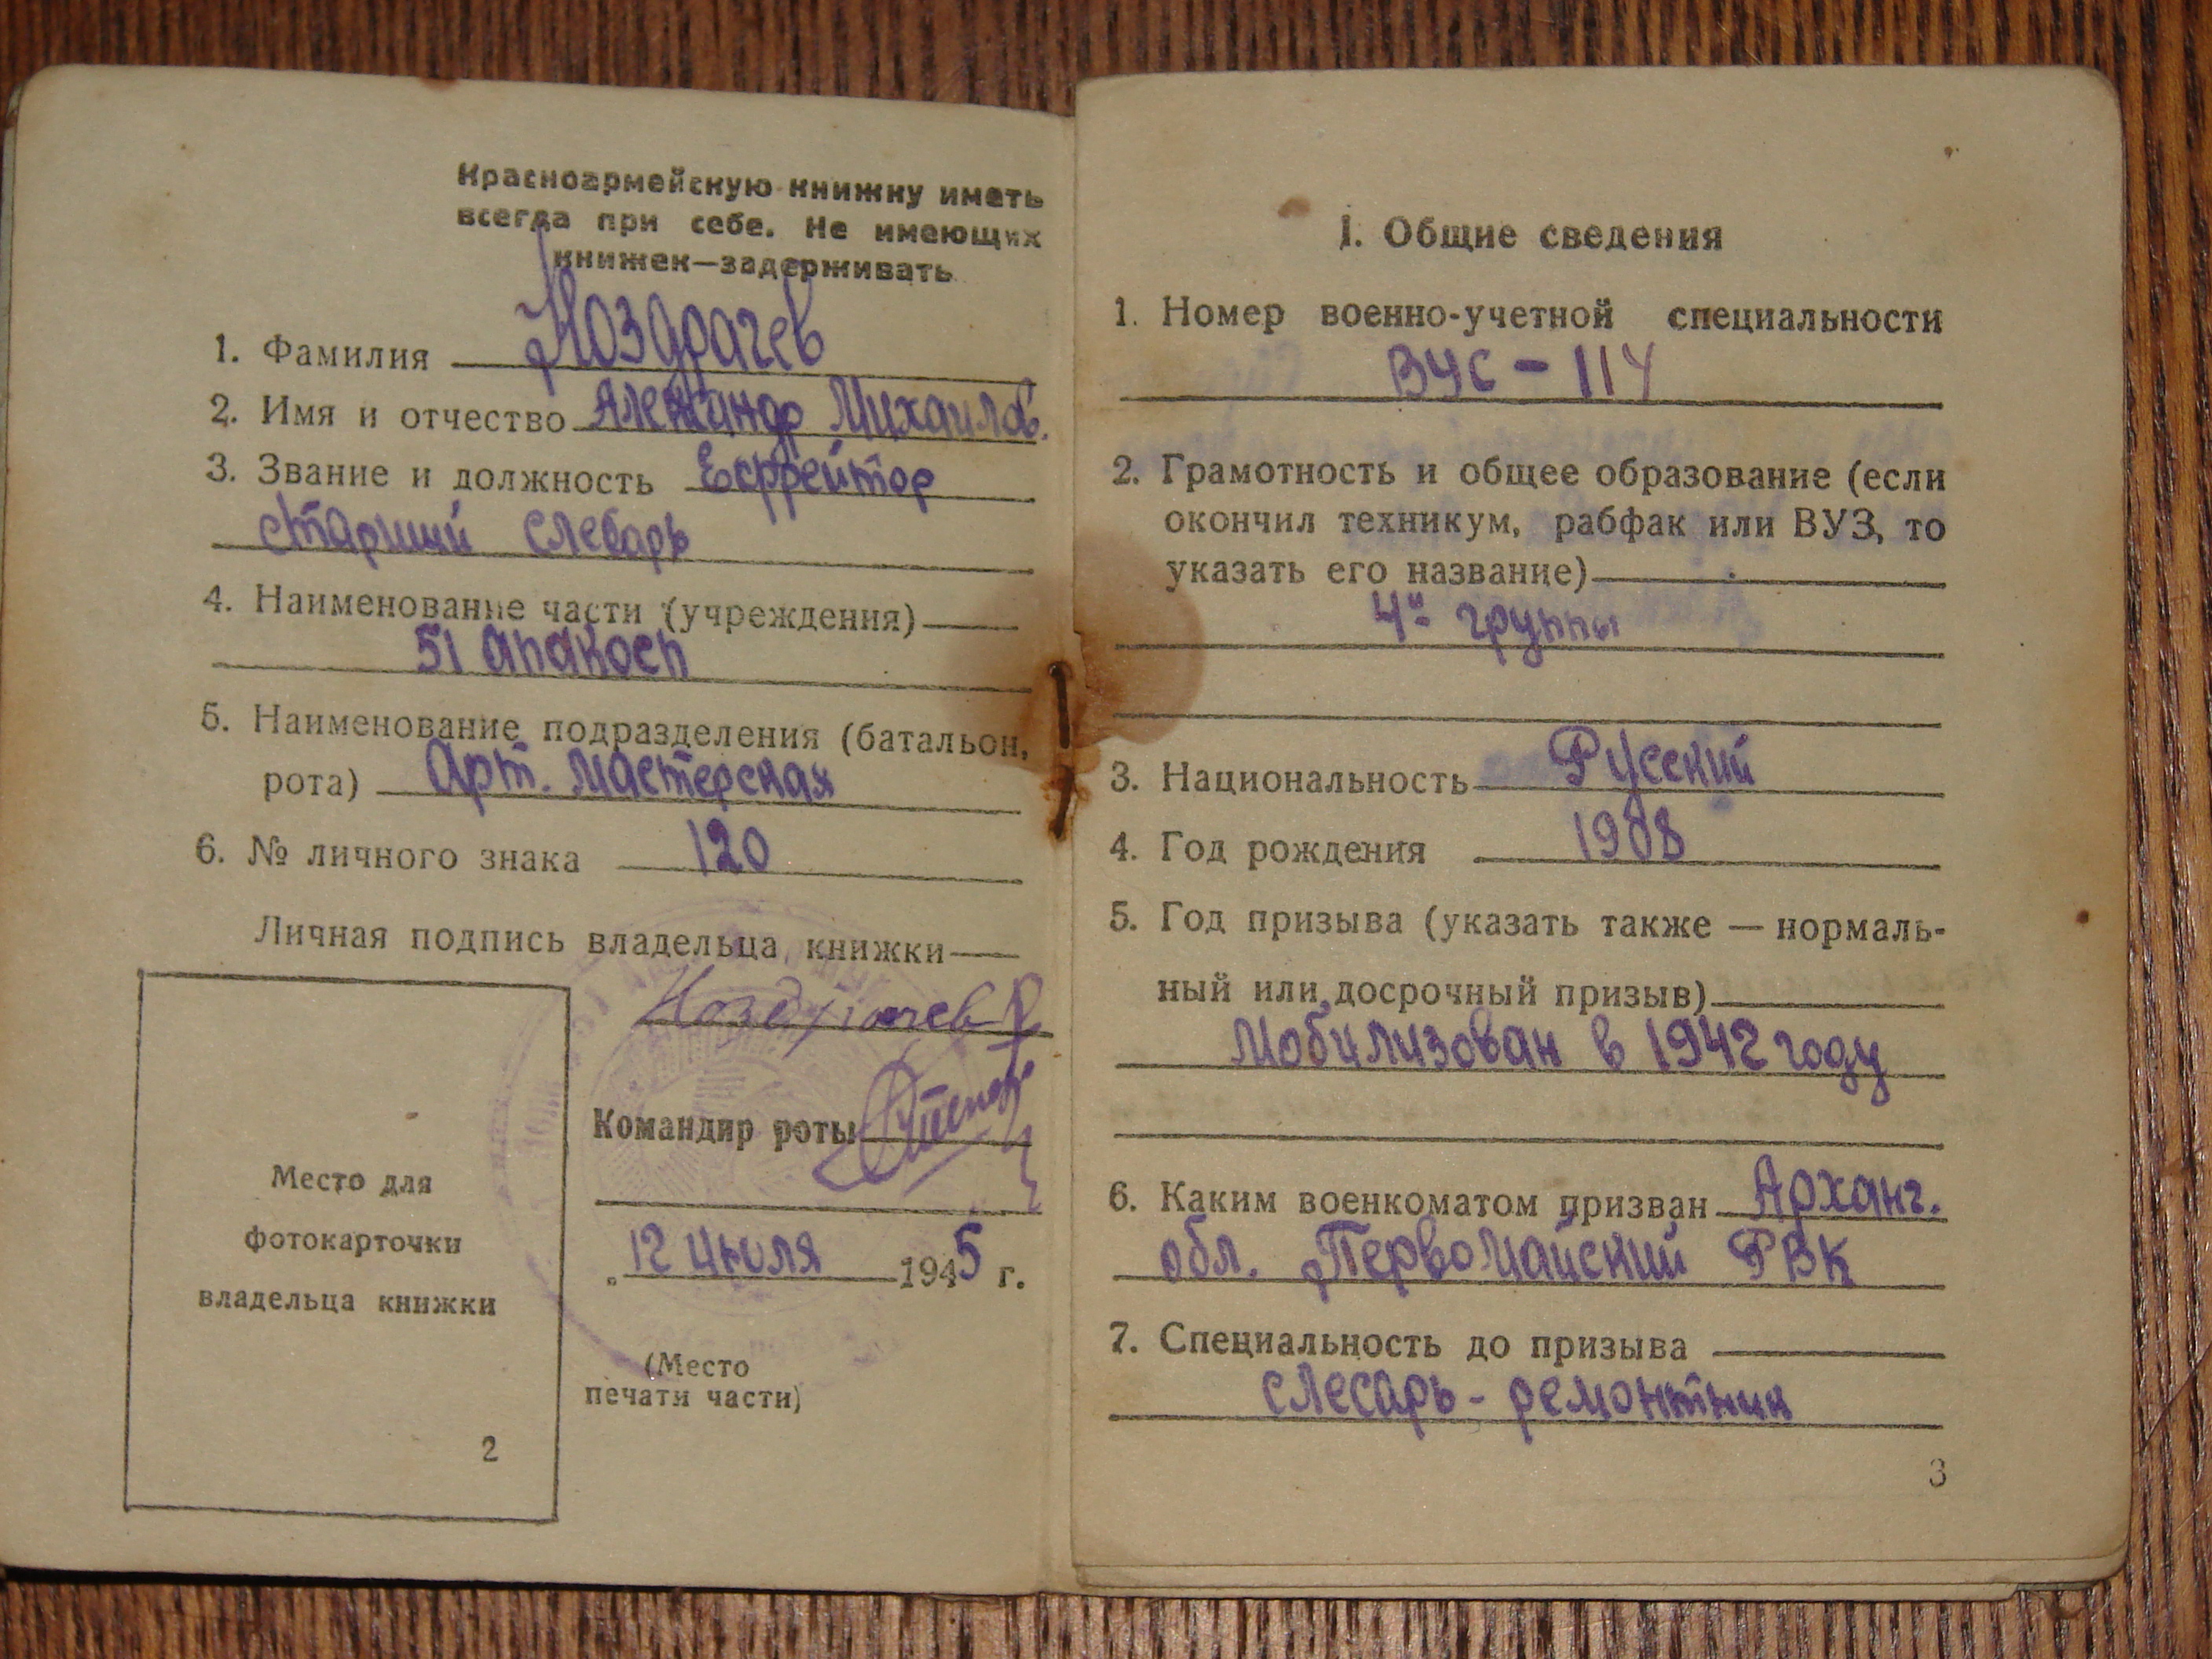 Красноармейскую книжку иметь
всегда при себе. Не имеющих
книжек—задерживать
1. Фамилия Ноздрачев
2. Имя и отчество Александр Михайлов.
3. Звание и должность Ефрейтор
старший слесарь
4. Наименование части (учреждения)
51 апакосп
5. Наименование подразделения (батальон,
рота) Арт. мастерская
6. № личного знака 120
Личная подпись владельца книжки
Ноздрачев
Командир роты
12 июля 1945 г.
(Место
печати части)
Место для
фотокарточки
владельца книжки
2
I. Общие сведения
1. Номер военно-учетной специальности
ВУС - 114
2. Грамотность и общее образование (если
окончил техникум, рабфак или ВУЗ, то
указать его название)
4 группы
3. Национальность Русский
4. Год рождения 1908
5. Год призыва (указать также — нормаль-
ный или досрочный призыв)
Мобилизован в 1942 году
6. Каким военкоматом призван Арханг.
обл. Первомайский РВК
7. Специальность до призыва
слесарь - ремонтник
3